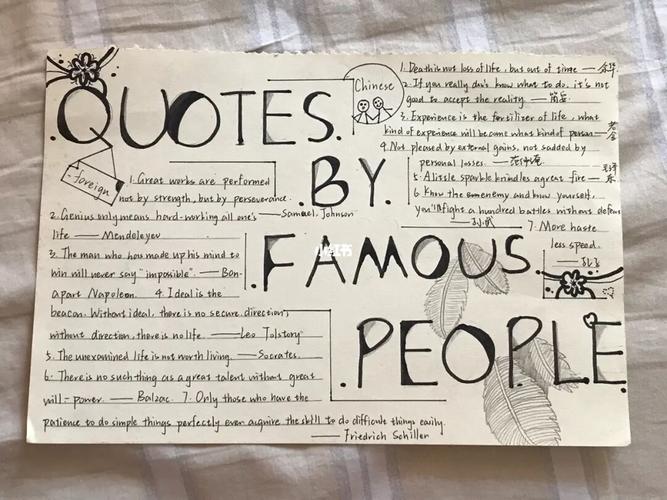 QUOTES
.BY.
FAMOUS
.PEOPLE.
Chinese
1. Death is not loss of life, but out of time — 余华
2. If you really don't know what to do, it's not
good to accept the reality. —
3. Experience is the fertilizer of life, what
kind of experience will become what kind of person —老舍
4. Not pleased by external gains, not sadded by
personal losses. — 范仲淹
5. A little sparkle kindles a great fire —
6. Know the enemy and know yourself,
you'll fight a hundred battles without defeat
7. More haste
less speed.
—孔子
- foreign
1. Great works are performed
not by strength, but by perseverance.
—Samuel. Johnson
2. Genius only means hard-working all one's
life. — Mendeleyev
3. The man who has made up his mind to
win will never say "impossible". — Bon-
apart Napoleon. 4. Ideal is the
beacon. Without ideal, there is no secure direction;
without direction, there is no life. — Leo Tolstory
5. The unexamined life is not worth living. — Socrates.
6. There is no such thing as a great talent without great
will-power. — Balzac. 7. Only those who have the
patience to do simple things perfectly ever acquire the skill to do difficult things easily.
— Friedrich Schiller
小红书